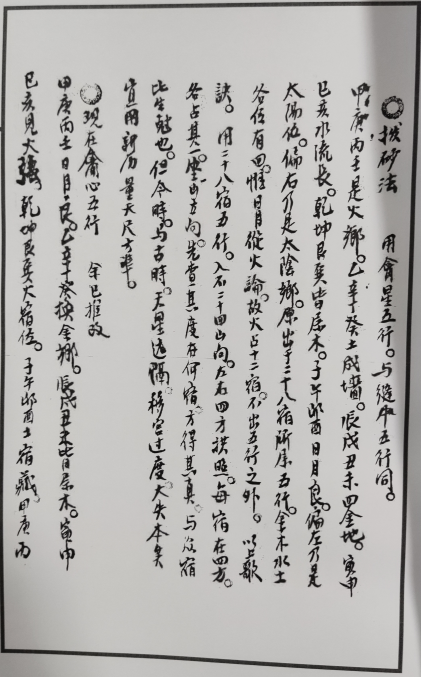 拨砂法　用禽星五行。与缝中五行同。
甲庚丙壬是火乡。乙辛丁癸土成墙。辰戌丑未四金地。寅申
巳亥水流长。乾坤艮巽皆属木。子午卯酉日月良。偏左乃是
太阳位。偏右乃是太阴乡。原出于二十八宿所属五行。金木水土
各位有四。惟日月从火论。故火占十二宿。不出五行之外。以上歌
诀。用二十八宿五行。入于二十四山向。左右四方拱照。每宿在四方。
各占其一。坐山立向。先查其度在何宿。方得其真。与众宿
比生克也。但今时与古时。天星远隔。移宫过度。大失本矣
宜用新历量天尺为准。
现在禽心五行　余已推改
甲庚丙壬日月良。乙辛丁癸换金乡。辰戌丑未皆属木。寅申
巳亥见火强。乾坤艮巽水宿位。子午卯酉土宿藏。甲庚丙